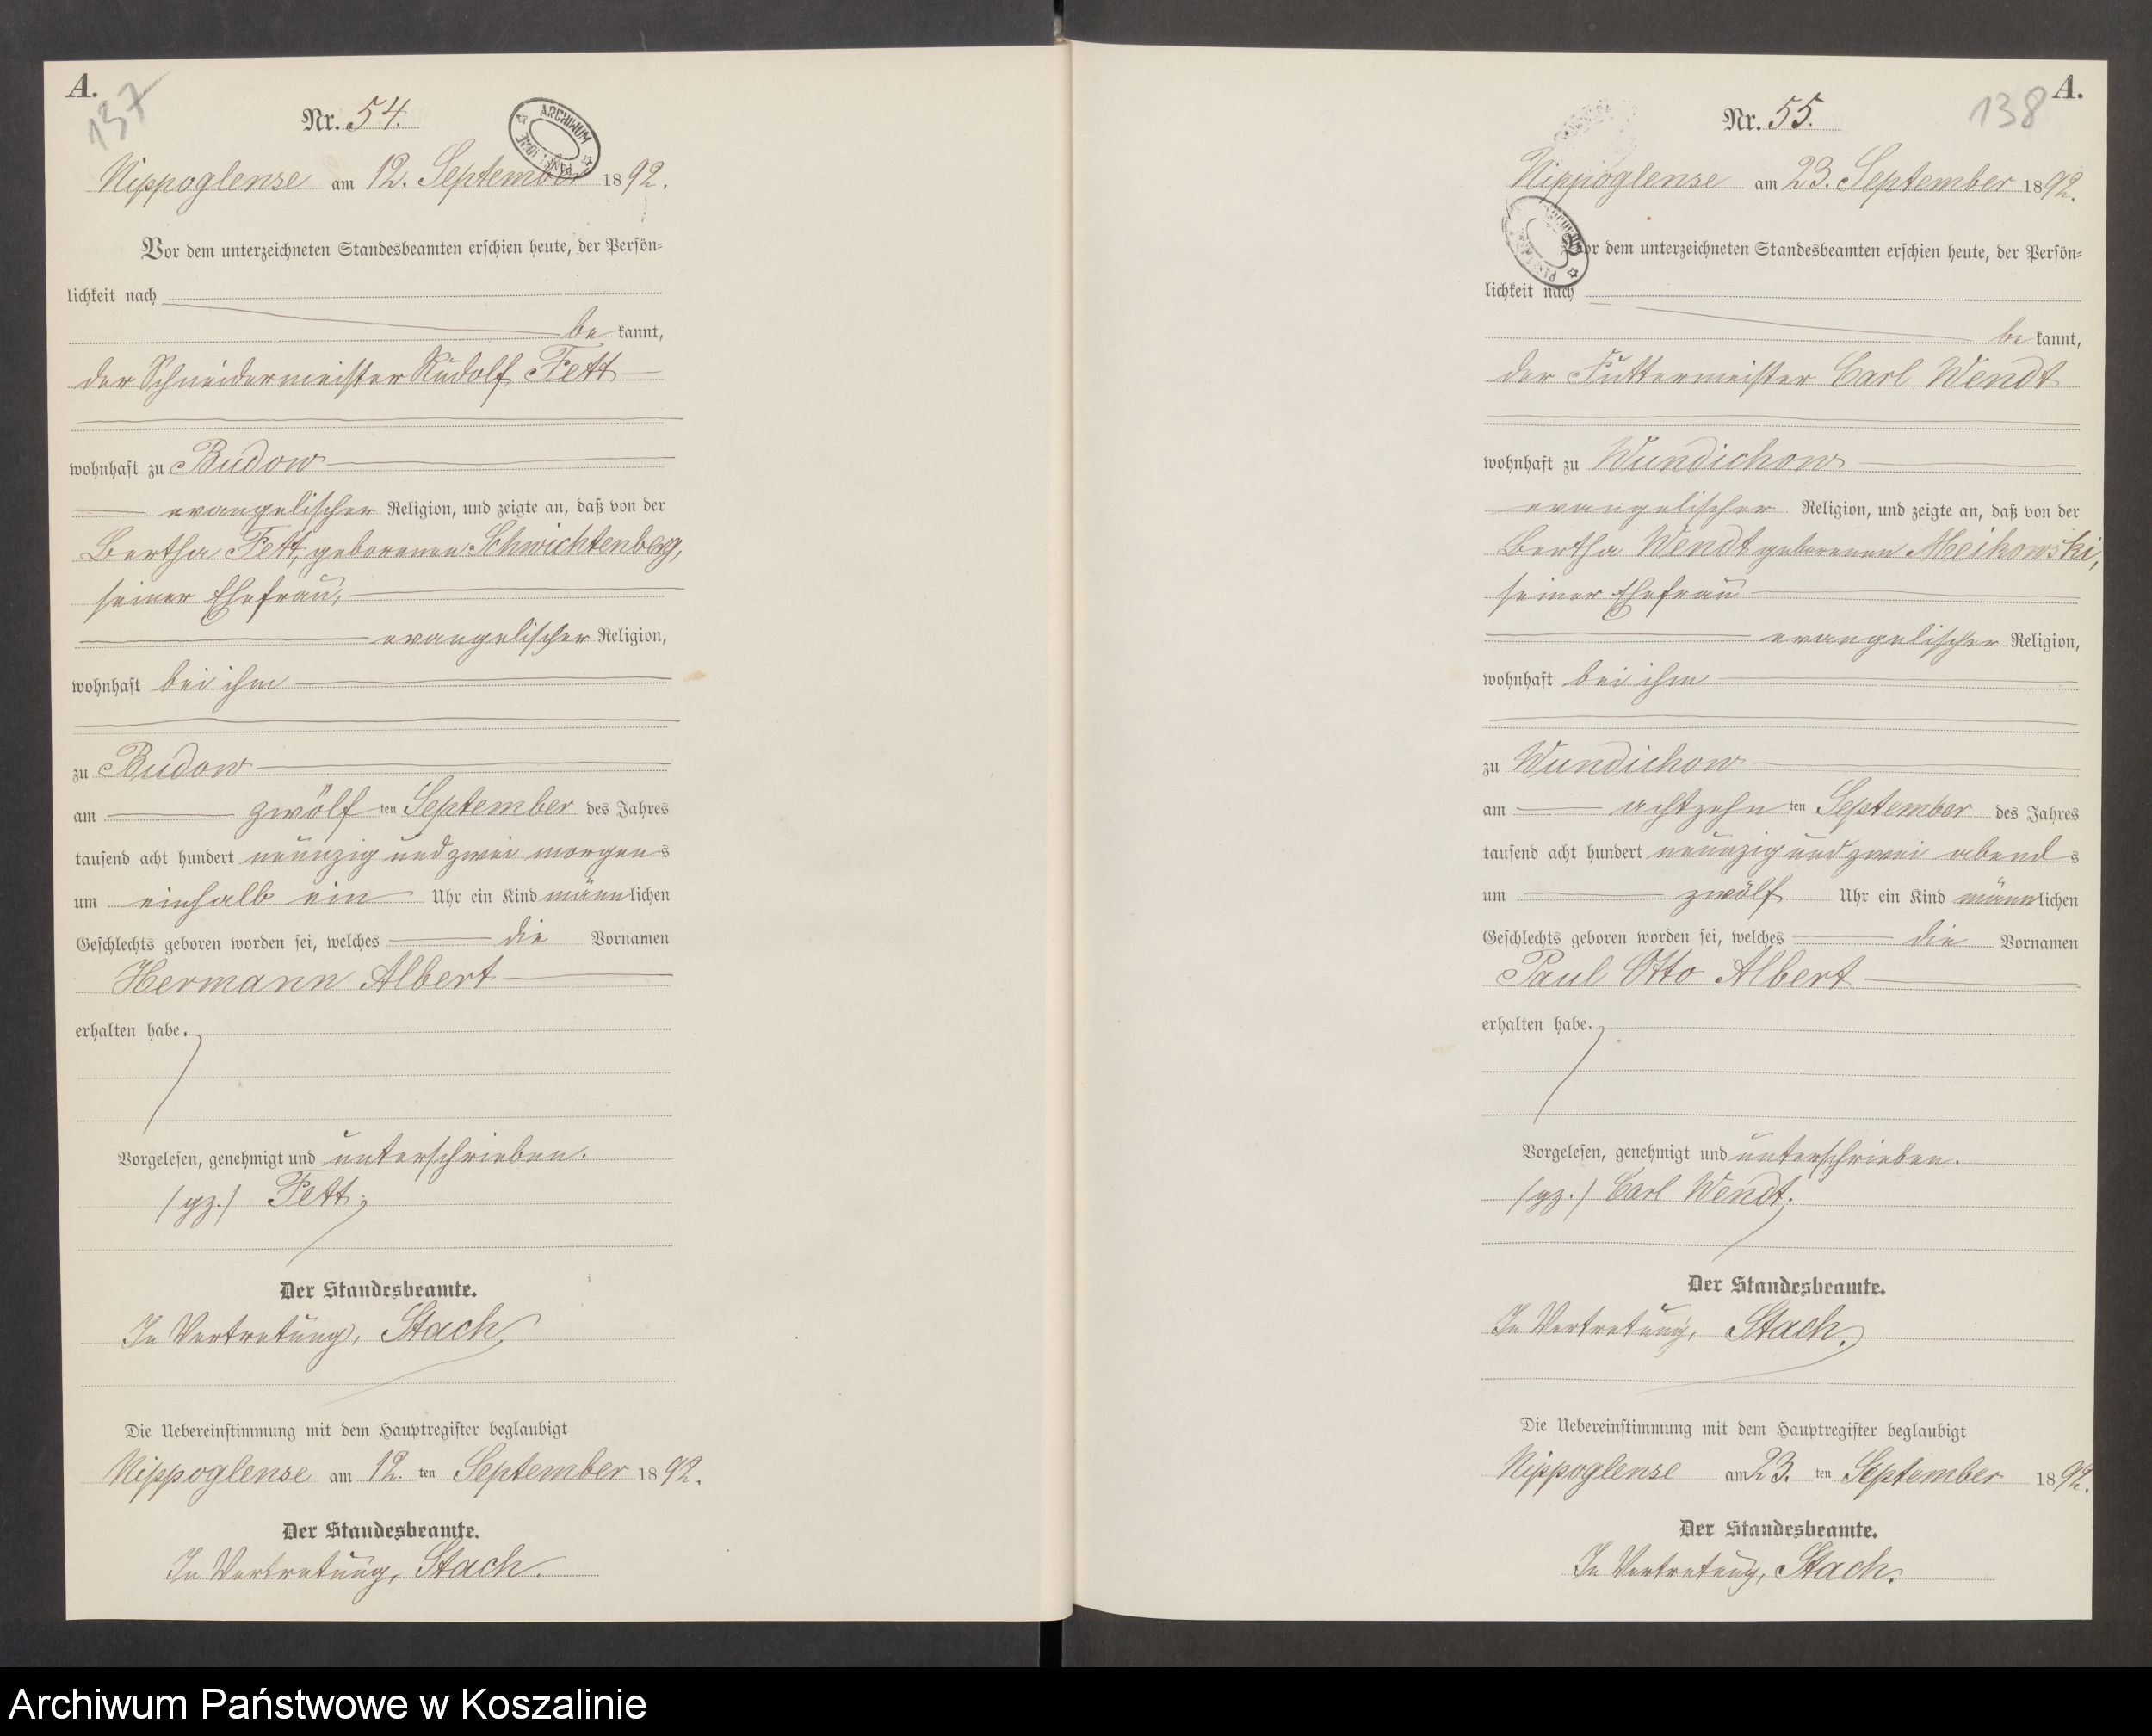 A.
137
Nr. 54.
ARCHIWUM
Nippoglense am 12. September 1892.
Vor dem unterzeichneten Standesbeamten erschien heute, der Persön-
lichkeit nach
be kannt,
der Schneidermeister Rudolf Fett
wohnhaft zu Budow
evangelischer Religion, und zeigte an, daß von der
Bertha Fett, geborenen Schwichtenberg,
seiner Ehefrau,
evangelischer Religion,
wohnhaft bei ihm
zu Budow
am zwölf ten September des Jahres
tausend acht hundert neunzig und zwei morgens
um einhalb ein Uhr ein Kind männlichen
Geschlechts geboren worden sei, welches die Vornamen
Hermann Albert
erhalten habe.
Vorgelesen, genehmigt und unterschrieben.
(gz.) Fett.
Der Standesbeamte.
In Vertretung, Stach.
Die Uebereinstimmung mit dem Hauptregister beglaubigt
Nippoglense am 12. ten September 1892.
Der Standesbeamte.
In Vertretung, Stach.
A.
138
Nr. 55.
Nippoglense am 23. September 1892.
Vor dem unterzeichneten Standesbeamten erschien heute, der Persön-
lichkeit nach
be kannt,
der Futtermeister Carl Wendt
wohnhaft zu Wundichow
evangelischer Religion, und zeigte an, daß von der
Bertha Wendt geborenen Meikowski,
seiner Ehefrau
evangelischer Religion,
wohnhaft bei ihm
zu Wundichow
am achtzehn ten September des Jahres
tausend acht hundert neunzig und zwei abends
um zwölf Uhr ein Kind männlichen
Geschlechts geboren worden sei, welches die Vornamen
Paul Otto Albert
erhalten habe.
Vorgelesen, genehmigt und unterschrieben.
(gz.) Carl Wendt.
Der Standesbeamte.
In Vertretung, Stach.
Die Uebereinstimmung mit dem Hauptregister beglaubigt
Nippoglense am 23. ten September 1892.
Der Standesbeamte.
In Vertretung, Stach.
Archiwum Państwowe w Koszalinie